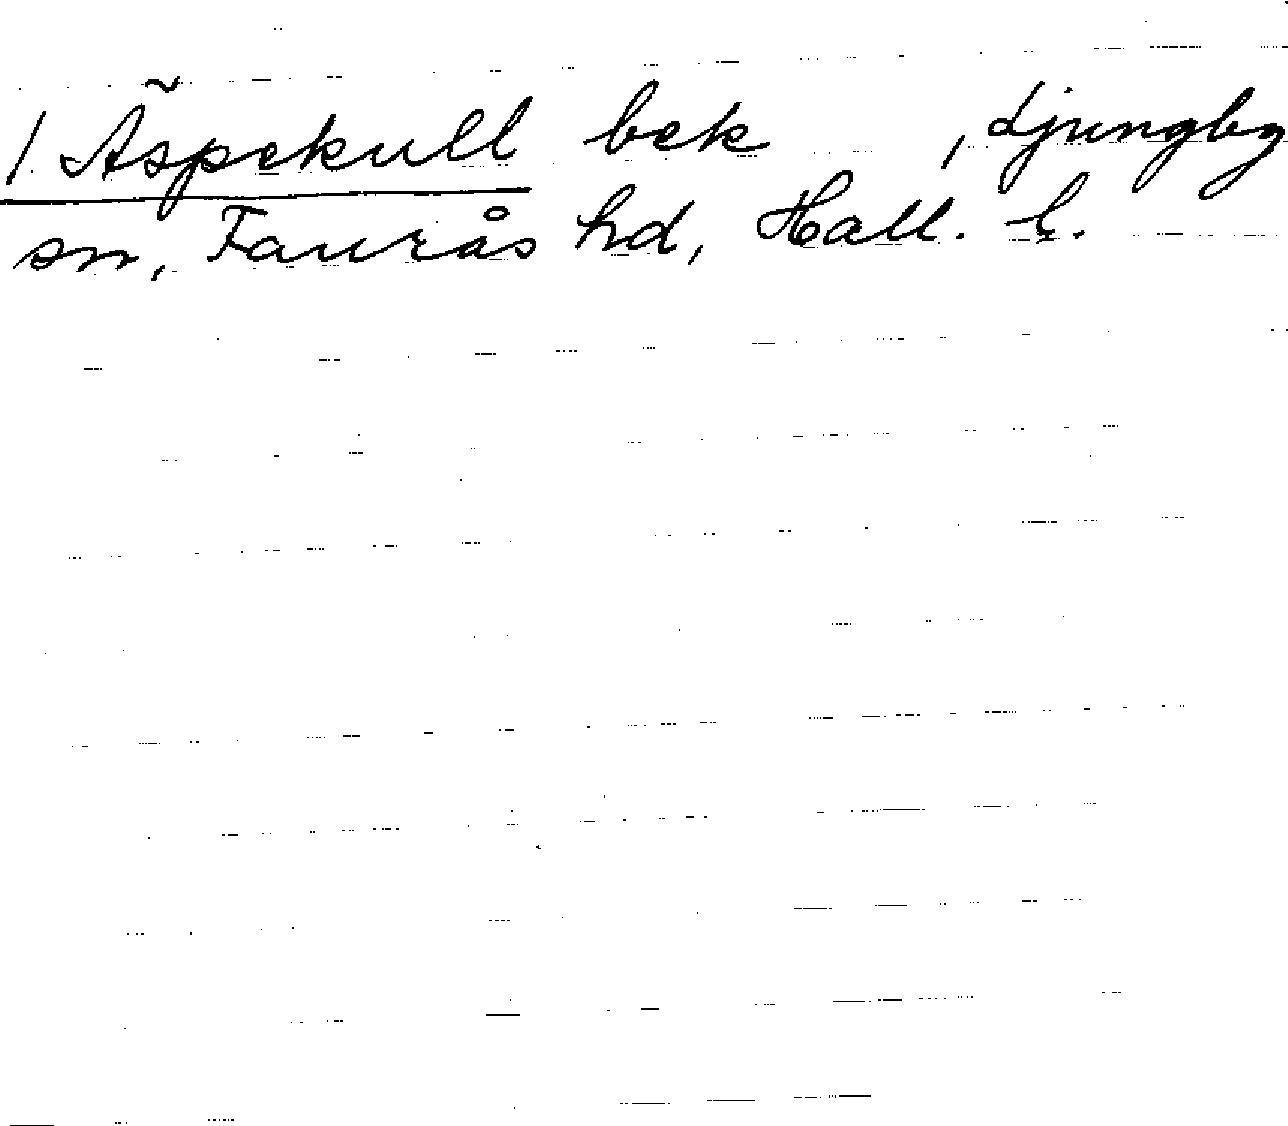 1 Äspekull bek , Ljungby
sn, Faurås hd, Hall. l.